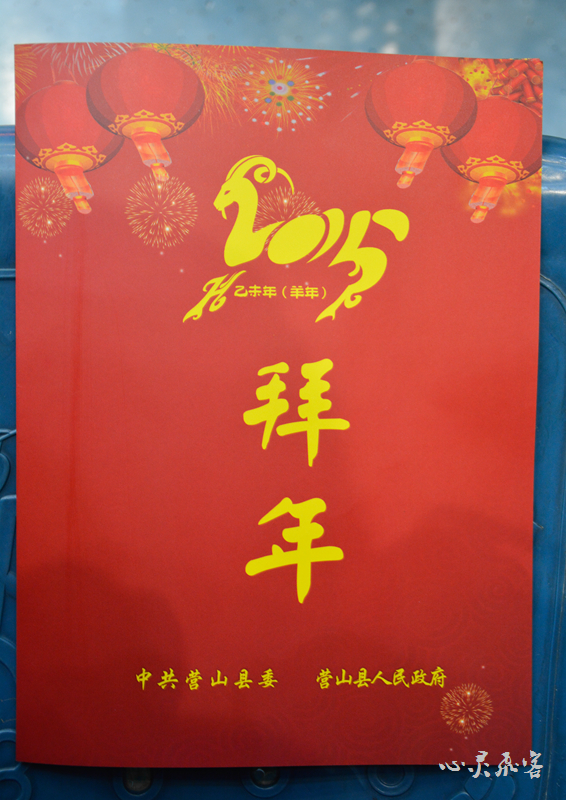 2015
乙未年（羊年）
拜
年
中共营山县委 营山县人民政府
心灵飛客